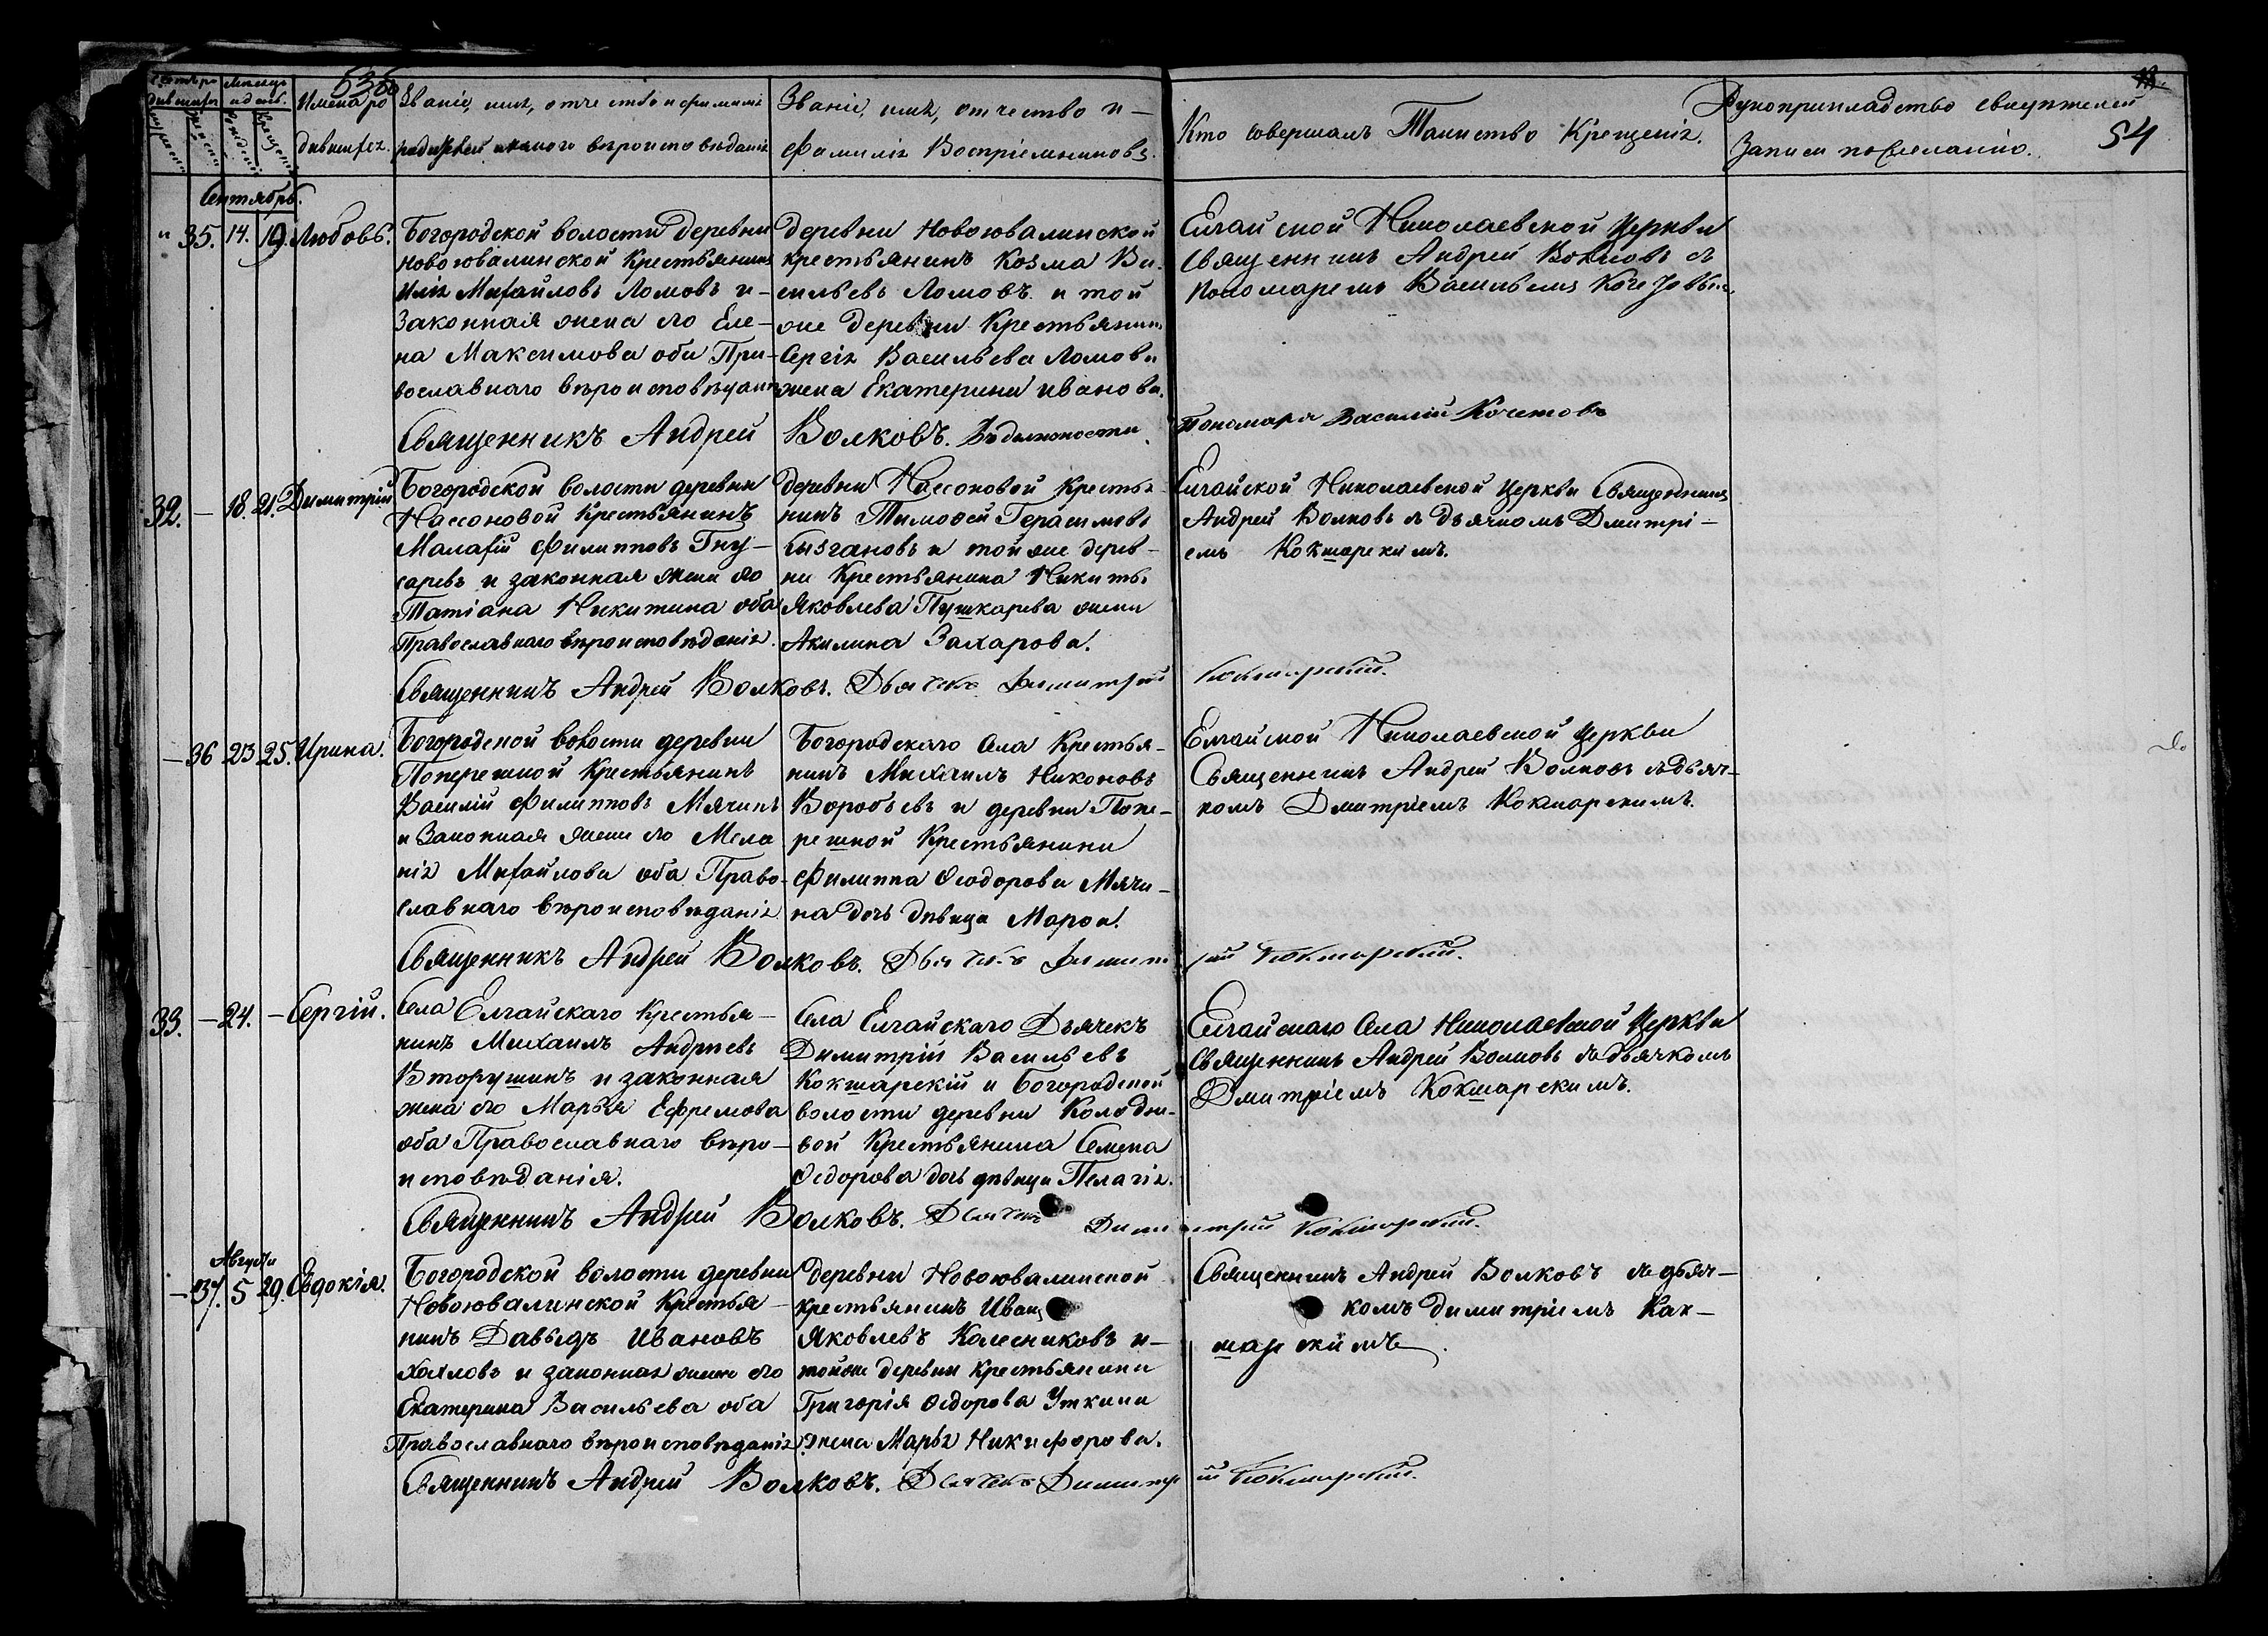 536
Счетъ ро
дившихся
Мѣсяцъ
и день.
Имена ро
дившихся.
Званіе, имя, отчество и фамилія
родителей и какого вѣроисповѣданія
Званіе, имя, отчество и —
фамилія Воспріемниковъ.
Кто совершалъ Таинство Крещенія.
Рукоприкладство свидѣтелей
Записи по желанію.
54
Сентябрь.
" 35. 14. 19. Любовь.
Богородской волости деревни
Новоювалинской Крестьянинъ
Илія Михайловъ Ломовъ и —
Законная жена его Еле—
на Максимова оба Пра—
вославнаго вѣроисповѣданія
деревни Новоювалинской
крестьянинъ Козма Ва
сильевъ Ломовъ и той
же деревни Крестьянина
Сергія Васильева Ломова
жена Екатерина Иванова.
Елгайской Николаевской Церкви
Священникъ Андрей Волковъ съ
Пономаремъ Васильемъ Кочетовымъ
Священникъ Андрей Волковъ. Въ должности
Пономаря Василій Кочетовъ
32. — 18. 21. Димитрій
Богородской волости деревни
Нассоновой Крестьянинъ
Малахій Филипповъ Гну—
саревъ и законная жена его
Татіана Никитина оба
Православнаго вѣроисповѣданія.
деревни Нассоновой Кресть
нинъ Тимоѳей Герасимовъ
Бызгановъ и той же дерев—
ни Крестьянина Никиты
Яковлева Пушкарева жена
Акилина Захарова.
Елгайской Николаевской Церкви Священникъ
Андрей Волковъ съ дьячкомъ Дмитрі—
емъ Кокшарскимъ.
Священникъ Андрей Волковъ. Дьячекъ Димитрій
Кокшарскій.
— 36 23 25. Ирина.
Богородской волости деревни
Поперешной Крестьянинъ
Василій Филипповъ Мячинъ
и Законная жена его Мела
нія Михайлова оба Право—
славнаго вѣроисповѣданія
Богородскаго Села Крестья—
нинъ Михаилъ Никоновъ
Воробьевъ и деревни Попе—
решной Крестьянина
Филиппа Ѳеодорова Мячи—
на дочь дѣвица Марѳа.
Елгайской Николаевской Церкви
Священникъ Андрей Волковъ съ дьяч—
комъ Дмитріемъ Кокшарскимъ.
Священникъ Андрей Волковъ. Дьячекъ Димит
рій Кокшарскій.
33. — 24. — Сергій.
Села Елгайскаго Крестья—
нинъ Михаилъ Андреевъ
Вторушинъ и законная
жена его Марья Ефремова
оба Православнаго вѣро—
исповѣданія.
Села Елгайскаго Дьячекъ
Димитрій Васильевъ
Кокшарскій и Богородской
волости деревни Колодни—
вой Крестьянина Семена
Ѳедорова дочь дѣвица Пелагія.
Елгайскаго Села Николаевской Церкви
Священникъ Андрей Волковъ съ дьячкомъ
Дмитріемъ Кокшарскимъ.
Священникъ Андрей Волковъ. Дьячекъ Димитрій Кокшарскій.
Августа
— 37. 5 29. Евдокія.
Богородской волости деревни
Новоювалинской Крестья—
нинъ Давыдъ Ивановъ
Хохловъ и законная жена его
Екатерина Васильева оба
Православнаго вѣроисповѣданія.
Деревни Новоювалинской
крестьянинъ Иван
Яковлевъ Колесниковъ и —
той же деревни крестьянина
Григорія Ѳедорова Уткина
жена Марья Никифорова.
Священникъ Андрей Волковъ съ дьяч—
комъ Димитріемъ Как—
шарскимъ.
Священникъ Андрей Волковъ. Дьячекъ Димитр
ій Кокшарскій.